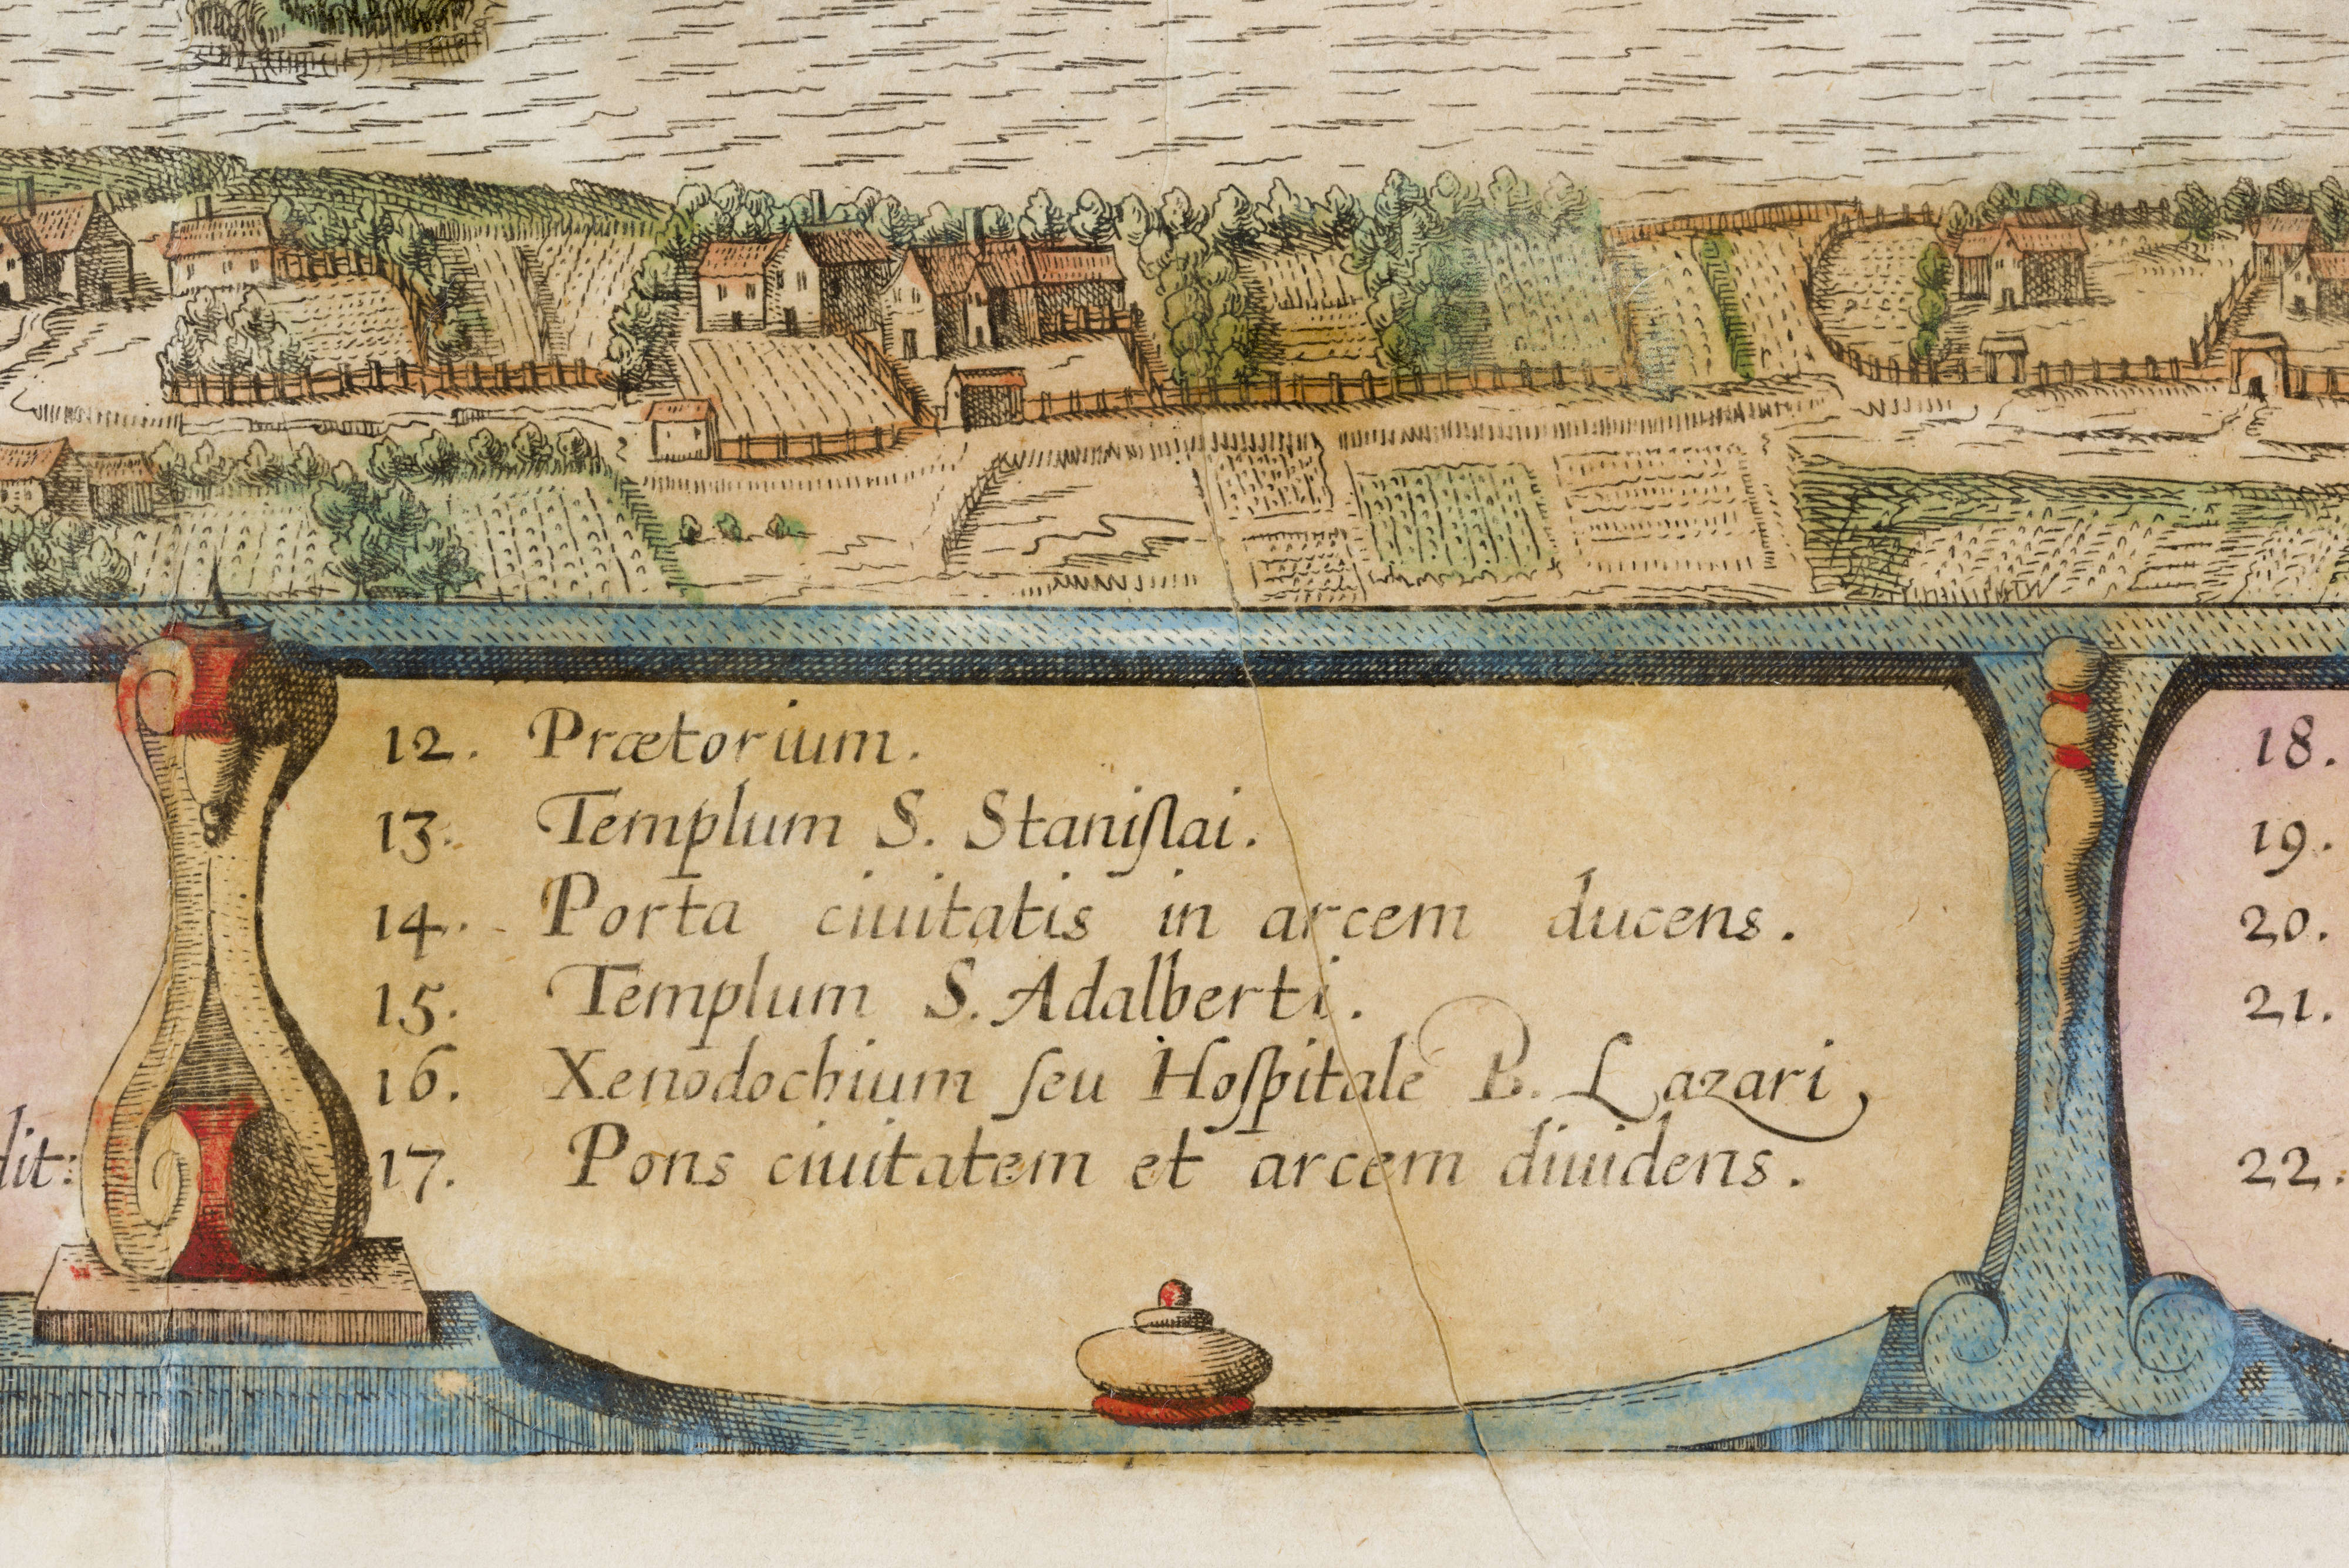 12. Prætorium.
13. Templum S. Staniſlai.
14. Porta ciuitatis in arcem ducens.
15. Templum S. Adalberti.
16. Xenodochium ſeu Hoſpitale B. Lazari,
17. Pons ciuitatem et arcem diuidens.
dit:
18.
19.
20.
21.
22.